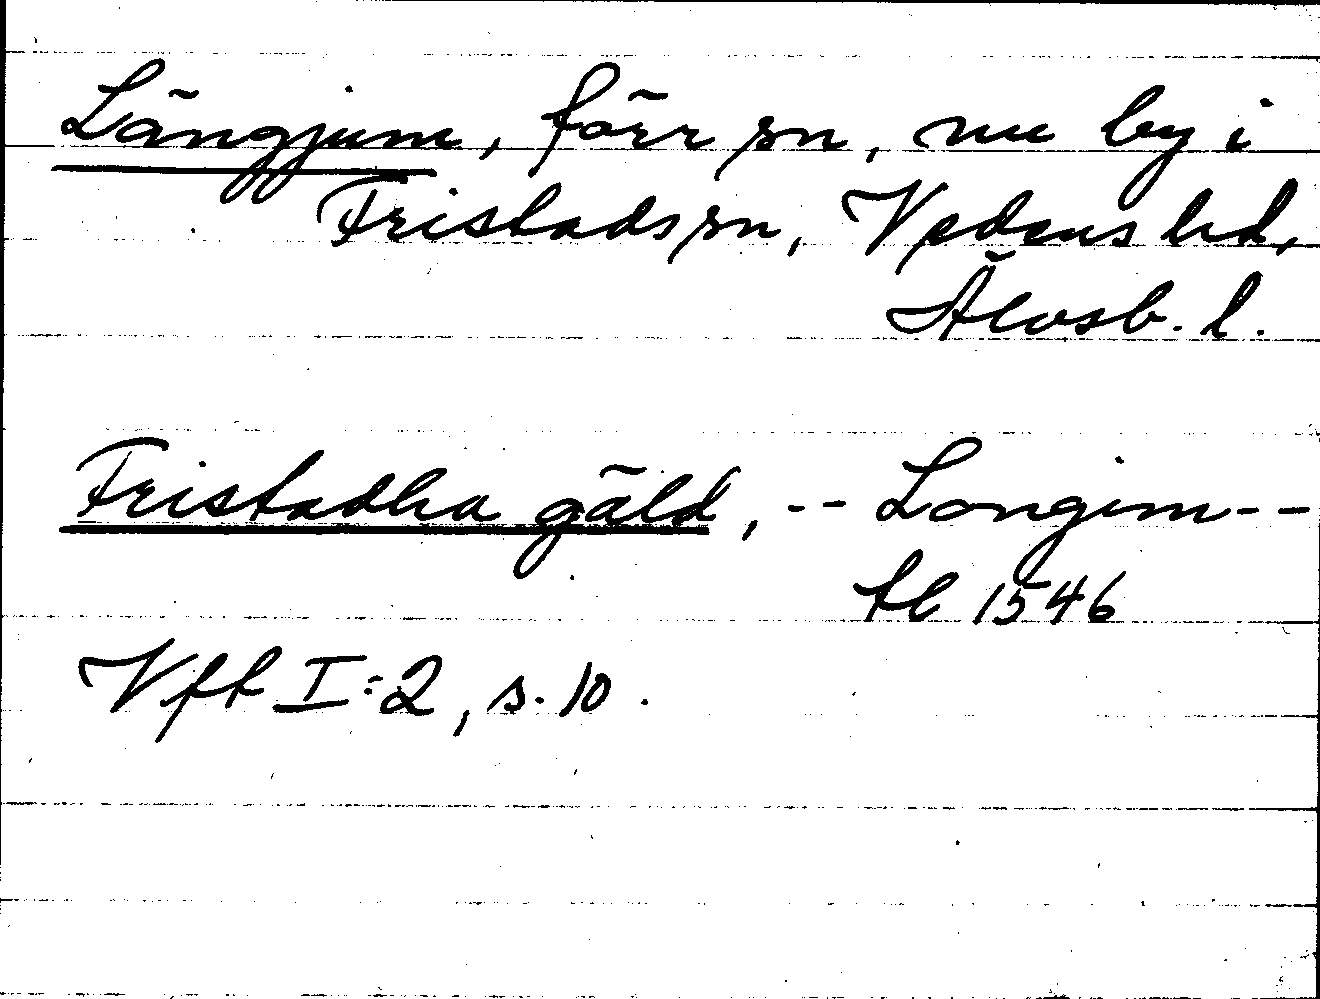 Längjum, förr sn, nu by i
Fristads sn, Vedens hd,
Älvsb. l.
Fristadha gäld, -- Longem--
tl 1546
Vfft I:2, s. 10.